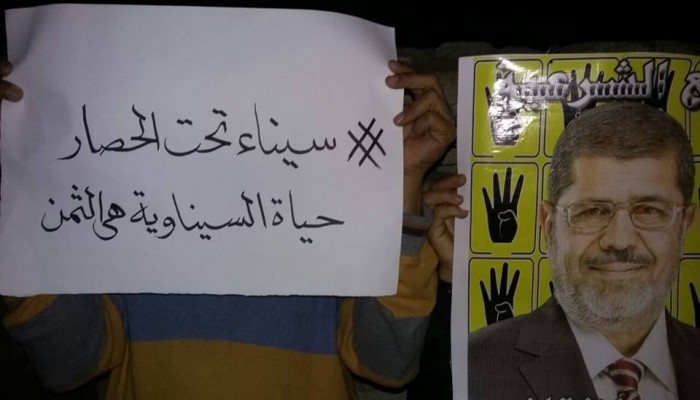 # سيناء تحت الحصار
حياة السيناوية هى الثمن
الشرعية